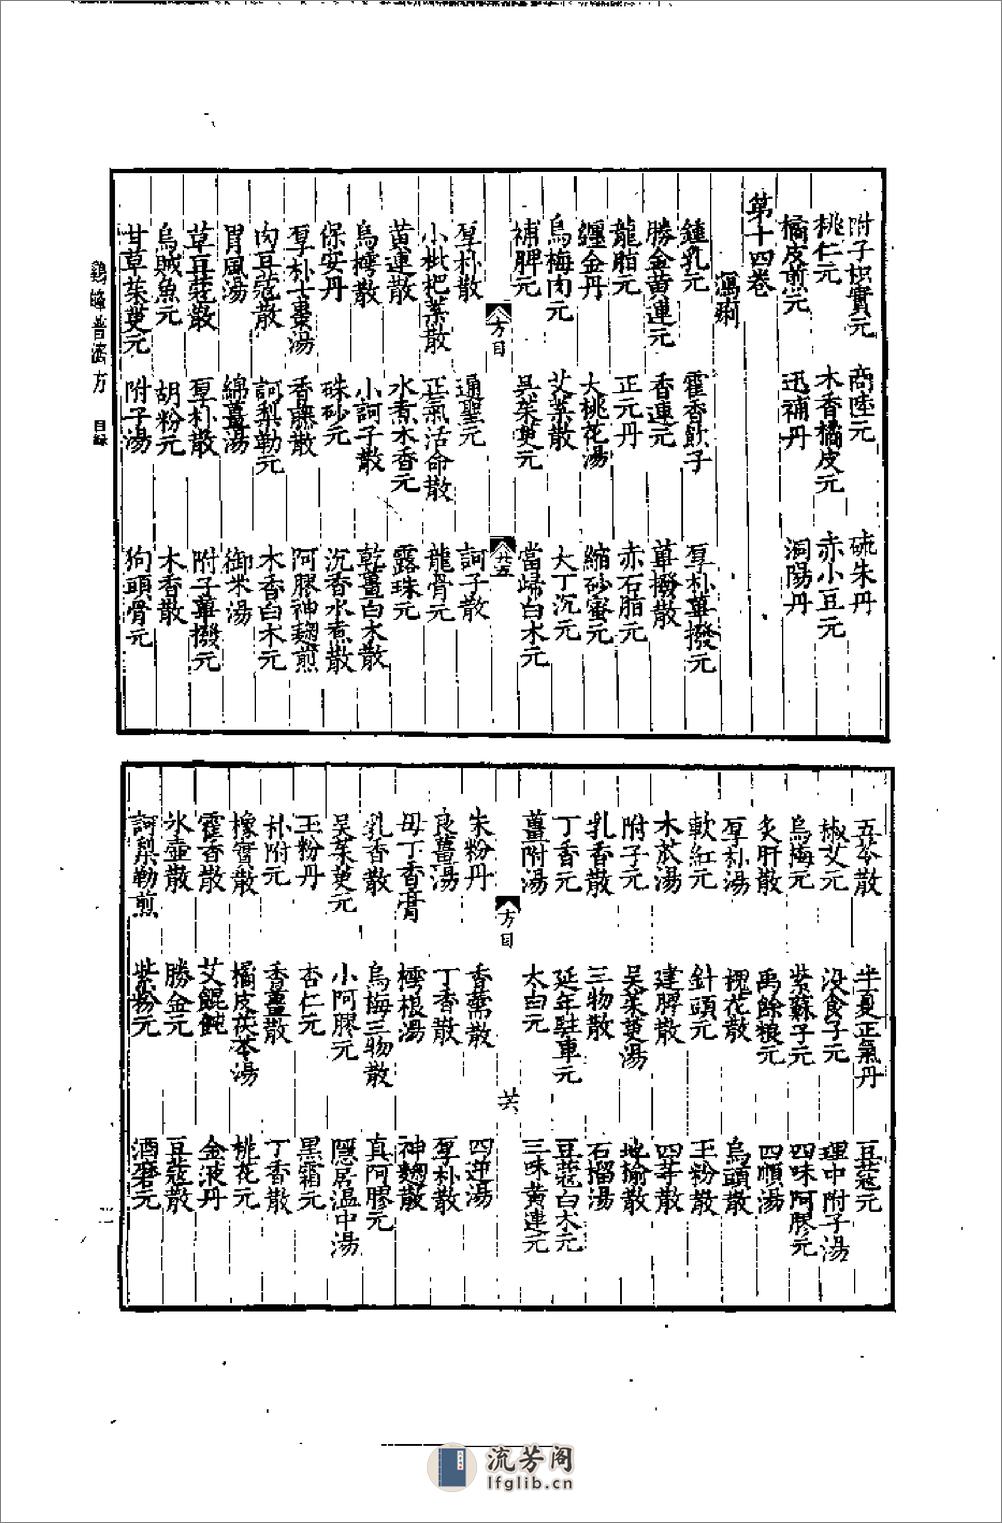 附子枳實元 商陸元 硫朱丹
桃仁元 木香橘皮元 赤小豆元
橘皮煎元 迅補丹 洞陽丹
第十四卷
瀉痢
鍾乳元 霍香飲子 厚朴蓽撥元
勝金黄連元 香連元 蓽撥散
龍脂元 正元丹 赤石脂元
纏金丹 大桃花湯 縮砂蜜元
烏梅肉元 艾葉散 大丁沉元
補脾元 吳茱萸元 當歸白术元
方目 廿五
厚朴散 通聖元 訶子散
小枇杷葉散 正氣活命散 龍骨元
黄連散 水煮木香元 露珠元
烏樗散 小訶子散 乾薑白术散
保安丹 硃砂元 沉香水煮散
厚朴十棗湯 香藤散 阿膠神麹煎
肉豆蔻散 訶梨勒元 木香白术元
胃風湯 綿薑湯 御米湯
草豆蔻散 厚朴散 附子蓽撥元
烏賊魚元 胡粉元 木香散
甘草茱萸元 附子湯 狗頭骨元
鷄峰普濟方 目録
五苓散 半夏正氣丹 豆蔻元
椒艾元 没食子元 理中附子湯
烏梅元 紫蘇子元 四味阿膠元
炙肝散 禹餘粮元 四順湯
厚朴湯 槐花散 烏頭散
軟紅元 針頭元 玉粉散
木苽湯 建脾散 四草散
附子元 吴茱萸湯 地榆散
乳香散 三物散 石榴湯
丁香元 延年駐車元 豆蔻白术元
薑附湯 太白元 三味黄連元
方目 廿六
朱粉丹 香薷散 四逆湯
良薑湯 丁香散 厚朴散
母丁香膏 樗根湯 神麴散
乳香散 烏梅三物散 真阿膠元
吴茱萸元 小阿膠元 隱居温中湯
玉粉丹 杏仁元 黒霜元
朴附元 香薑散 丁香散
橡實散 橘皮茯苓湯 桃花元
霍香散 艾餛飩 金液丹
氷壺散 勝金元 豆蔻散
訶梨勒煎 紫粉元 酒磨元
二一
流芳阁
lfglib.cn